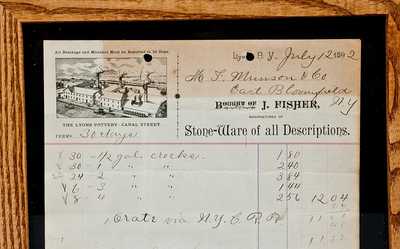 All Breakage and Mistakes Must be Reported in 10 Days.
Lyons N.Y. July 12 1892
M. T. Munson & Co
East Bloomfield
N.Y
BOUGHT OF J. FISHER,
MANUFACTURER OF
THE LYONS POTTERY-CANAL STREET
TERMS 30 days
Stone-Ware of all Descriptions.
30 - 1/2 gal crocks 1 80
30 - 1 " " 2 40
24 - 2 " " 3 84
6 - 3 " " 1 44
8 - 4 " " 2 56 12 04
Crate via N.Y.C.R.R